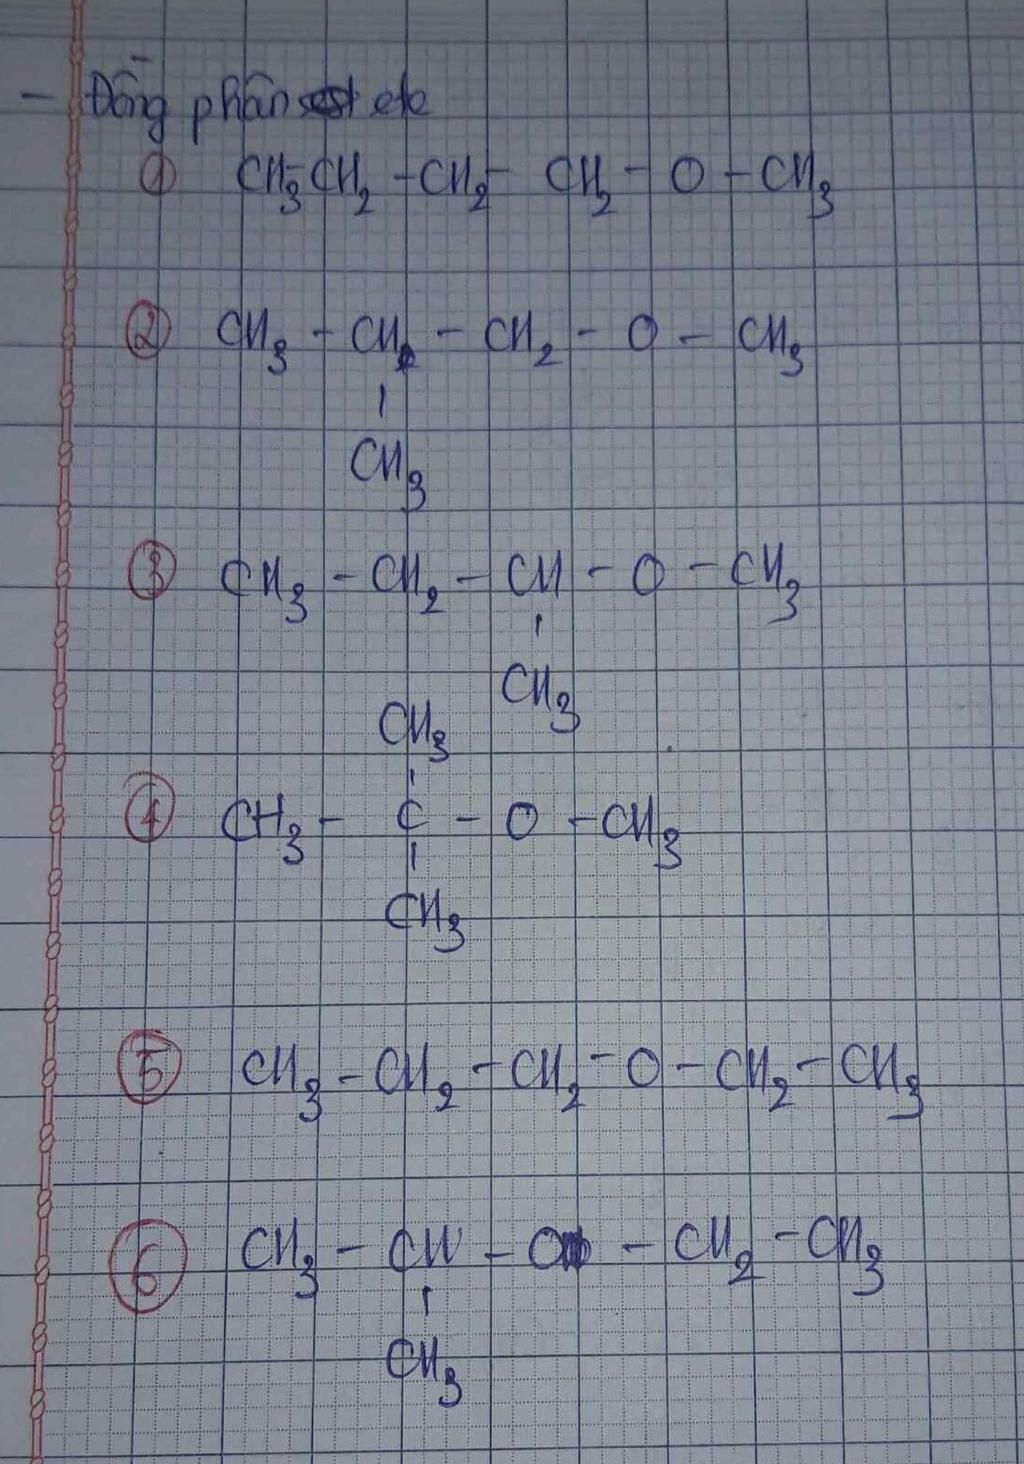 - Đồng phân ete
① CH₃-CH₂-CH₂-CH₂-O-CH₃
② CH₃-CH-CH₂-O-CH₃
CH₃
③ CH₃-CH₂-CH-O-CH₃
CH₃
CH₃
④ CH₃-C-O-CH₃
CH₃
⑤ CH₃-CH₂-CH₂-O-CH₂-CH₃
⑥ CH₃-CH-O-CH₂-CH₃
CH₃